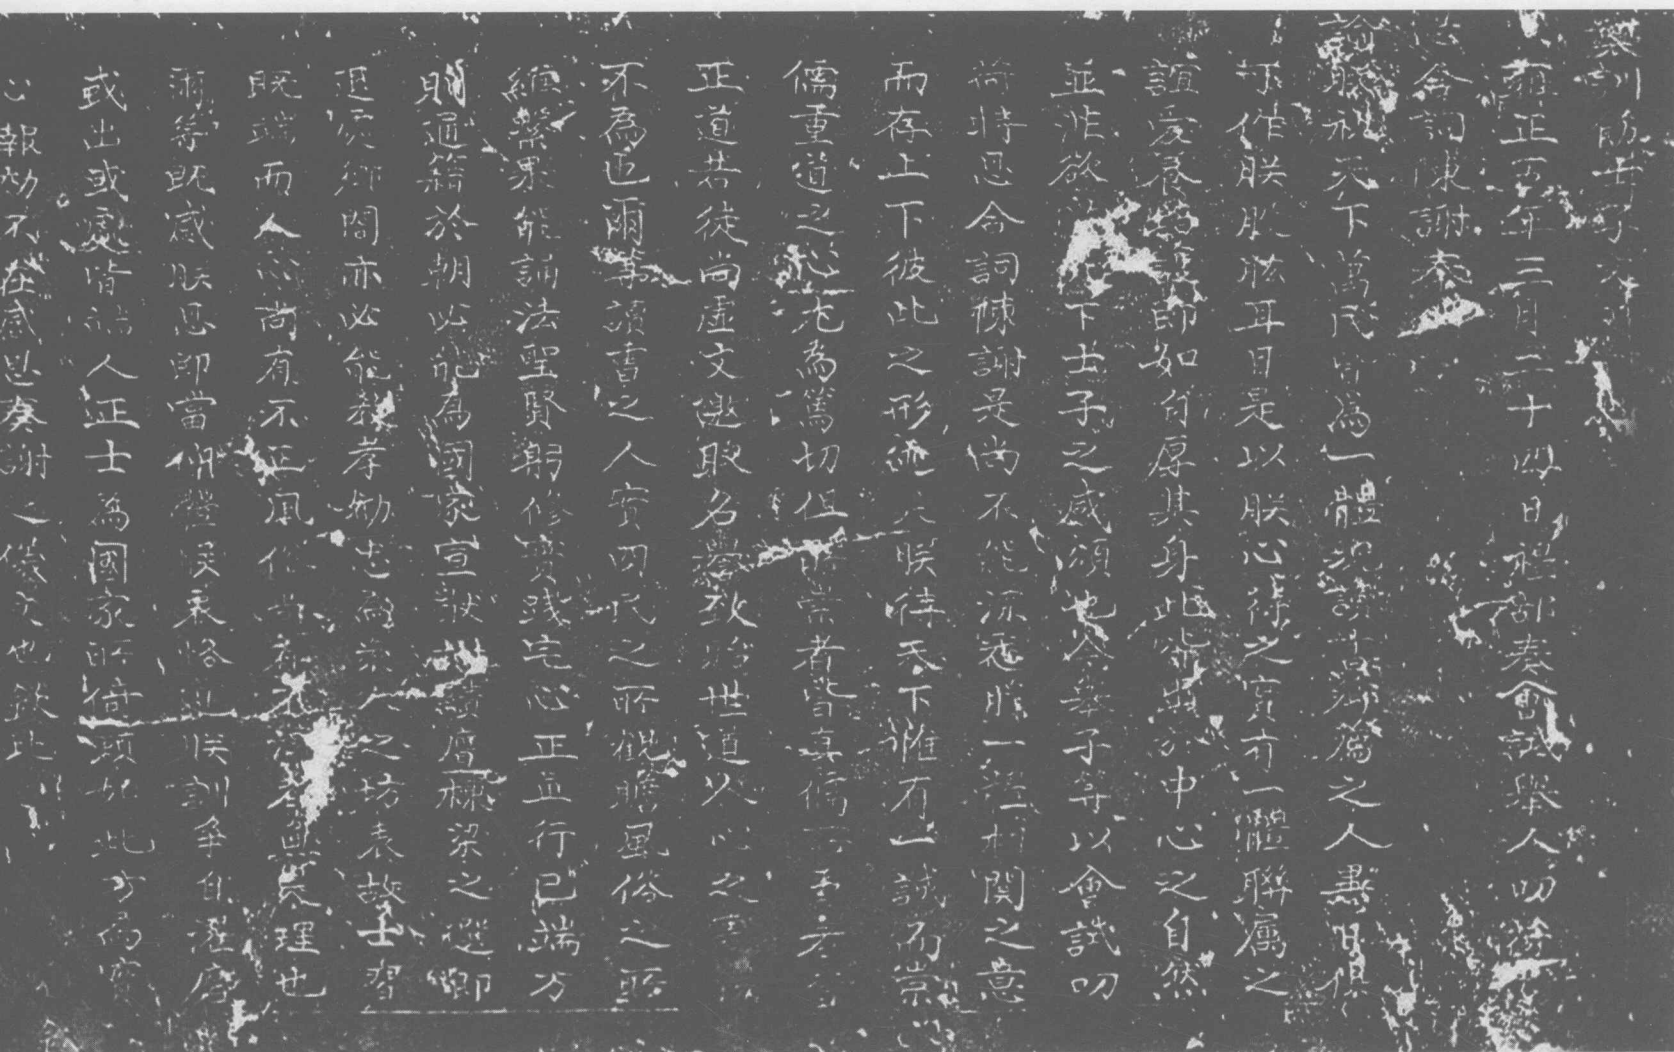 訓飭士子
雍正五年三月二十四日禮部奏會試舉人叨
恩合詞陳謝奉
諭朕視天下萬民皆為一體況讀書之人
作朕股肱耳目是以朕心待之實有一體聯屬之
誼愛養即如自厚其身此於中心之自然
並非欲下士子之感頌也今舉子等以會試叨
荷特恩合詞陳謝是尚不能深悉朕一體相關之意
而存上下彼此之形迹矣朕待天下惟有一誠而崇
儒重道之心尤為篤切但所崇者皆真儒
正道若徒尚虛文邀取名譽致貽世道人心之害
不為也爾等讀書之人實四民之所觀瞻風俗之所
維繫果能誦法聖賢躬修實踐宅心正直行己端方
則通籍於朝必能為國家宣猷樹績膺棟梁之選即
退處鄉閭亦必能教孝勸忠為眾人之坊表故士習
既端而人心尚有不正風俗尚有不者無是理也
爾等既感朕恩即當仰體朕衷恪遵朕訓爭自濯磨
或出或處皆端人正士為國家所倚賴如此方為實
心報効不在感恩奏謝之儀文也欽此